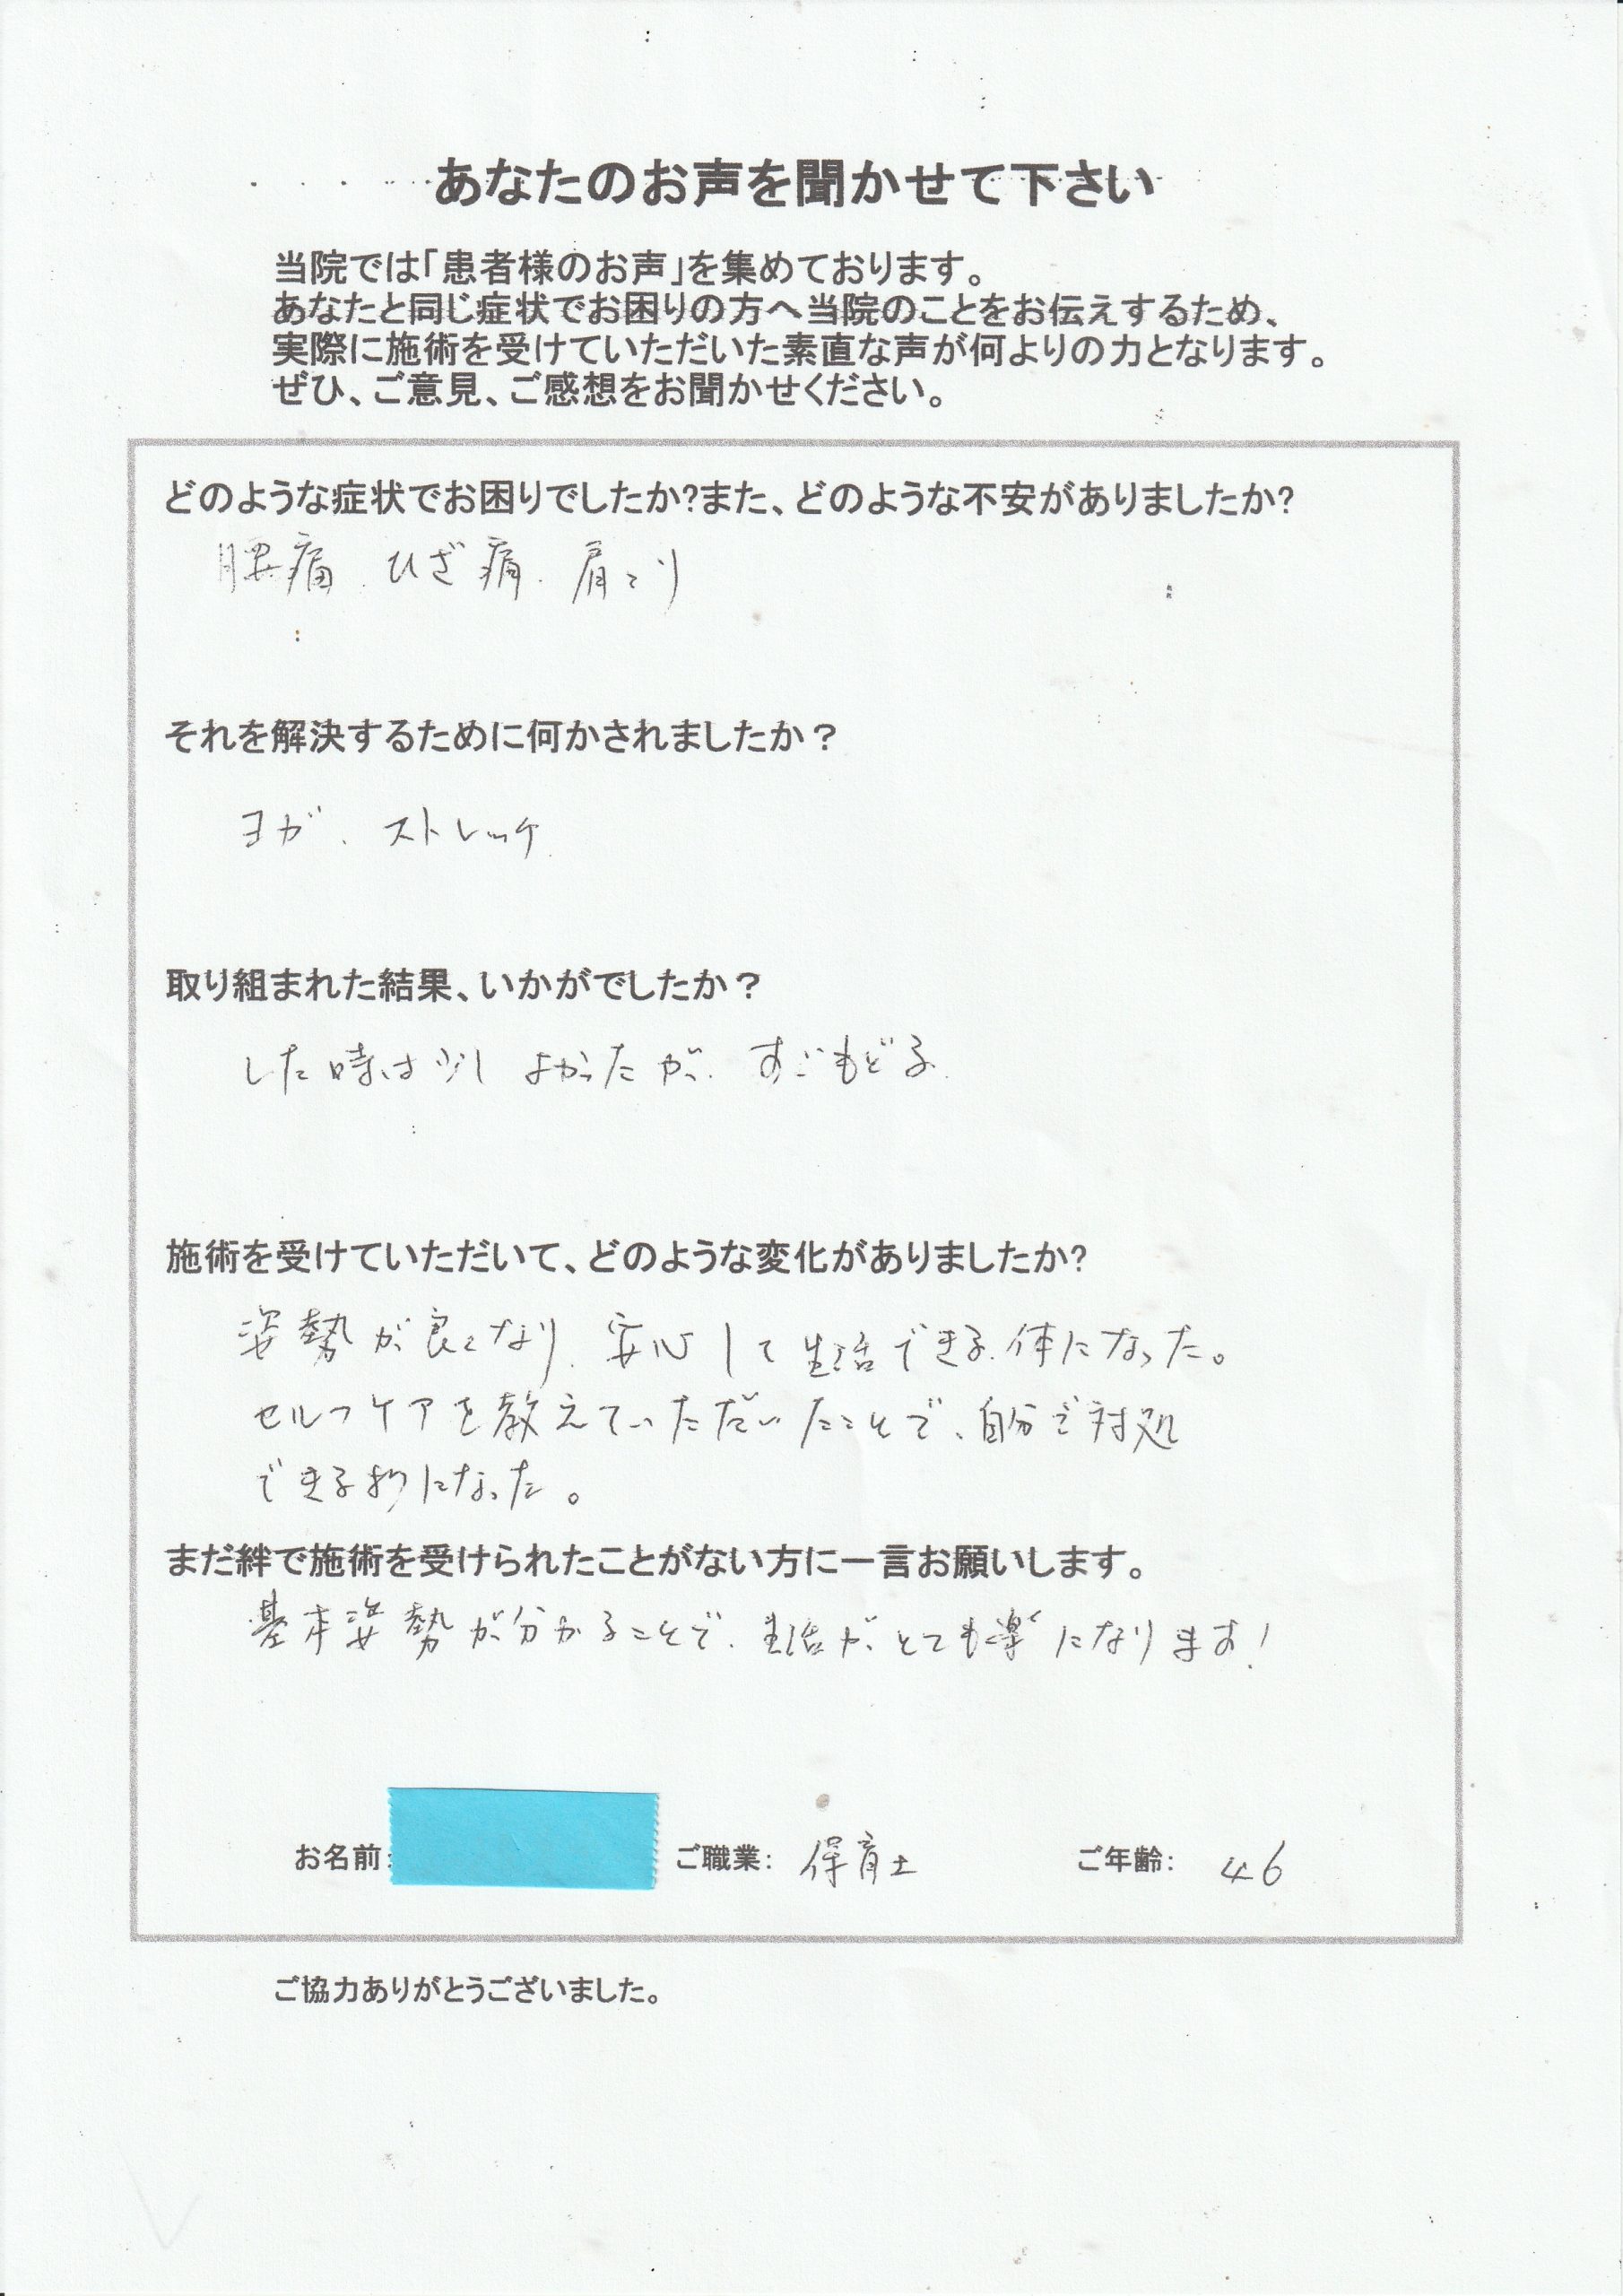 あなたのお声を聞かせて下さい
当院では「患者様のお声」を集めております。
あなたと同じ症状でお困りの方へ当院のことをお伝えするため、
実際に施術を受けていただいた素直な声が何よりの力となります。
ぜひ、ご意見、ご感想をお聞かせください。
どのような症状でお困りでしたか?また、どのような不安がありましたか?
腰痛、ひざ痛、肩こり
それを解決するために何かされましたか？
ヨガ、ストレッチ
取り組まれた結果、いかがでしたか？
した時は少しよかったが、すぐもどる
施術を受けていただいて、どのような変化がありましたか?
姿勢が良くなり、安心して生活できる体になった。
セルフケアを教えていただいたことで、自分で対処
できる様になった。
まだ絆で施術を受けられたことがない方に一言お願いします。
基本姿勢が分かることで、生活がとても楽になります!
お名前: ご職業: 保育士 ご年齢: 46
ご協力ありがとうございました。